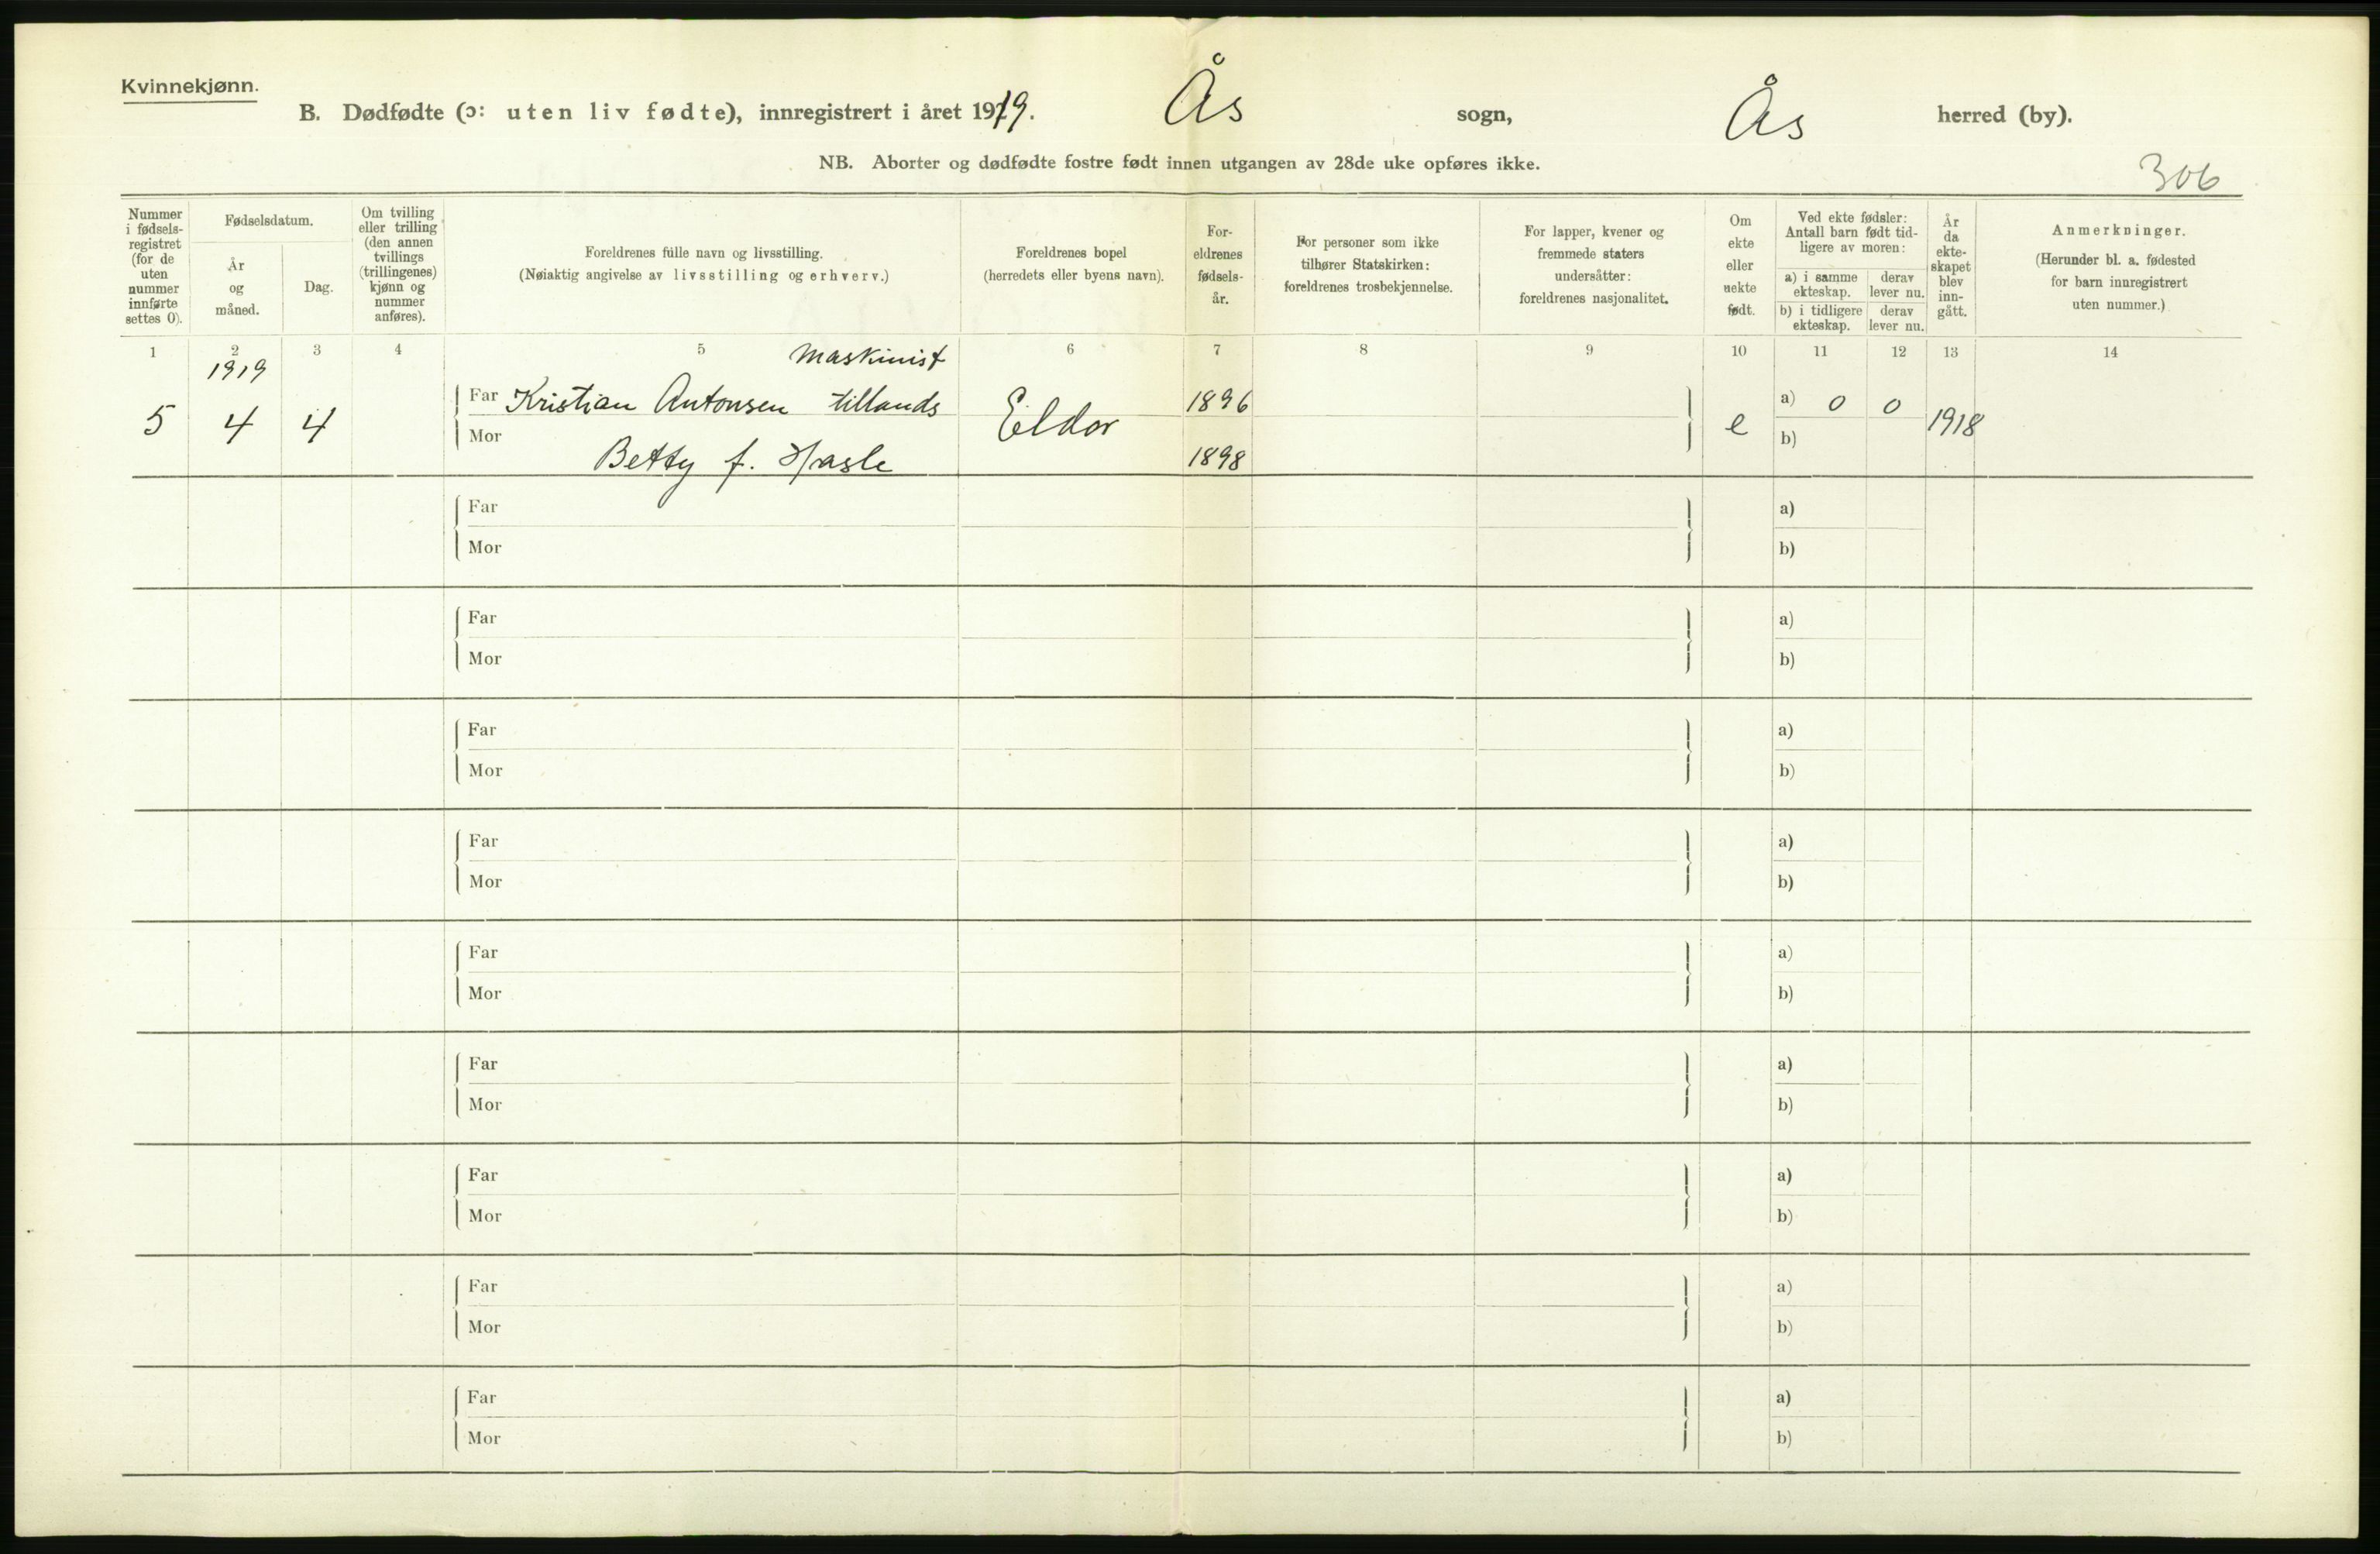 Kvinnekjønn.
B. Dødfødte (ɔ: uten liv fødte), innregistrert i året 1919. Ås sogn, Ås herred (by).
NB. Aborter og dødfødte fostre født innen utgangen av 28de uke opføres ikke.
306
Nummer i fødsels-registret (for de uten nummer innførte settes 0).
Fødselsdatum.
År og måned.
Dag.
Om tvilling eller trilling (den annen tvillings (trillingenes) kjønn og nummer anføres).
Foreldrenes fulle navn og livsstilling.
(Nøiaktig angivelse av livsstilling og erhverv.)
Foreldrenes bopel
(herredets eller byens navn).
For-eldrenes fødsels-år.
For personer som ikke
tilhører Statskirken:
foreldrenes trosbekjennelse.
For lapper, kvener og
fremmede staters
undersåtter:
foreldrenes nasjonalitet.
Om ekte eller uekte født.
Ved ekte fødsler:
Antall barn født tid-
ligere av moren:
a) i samme ekteskap.
derav lever nu.
b) i tidligere ekteskap.
derav lever nu.
År da ekte-skapet blev inn-gått.
Anmerkninger.
(Herunder bl. a. fødested
for barn innregistrert
uten nummer.)
1 2 3 4 5 6 7 8 9 10 11 12 13 14
1919 Maskinist
Far Kristian Antonsen tillands 1896 a) 0 0
5 4 4 Eldor e 1918
Mor Betty f. Hasle 1898 b)
Far a)
Mor b)
Far a)
Mor b)
Far a)
Mor b)
Far a)
Mor b)
Far a)
Mor b)
Far a)
Mor b)
Far a)
Mor b)
Far a)
Mor b)
Far a)
Mor b)